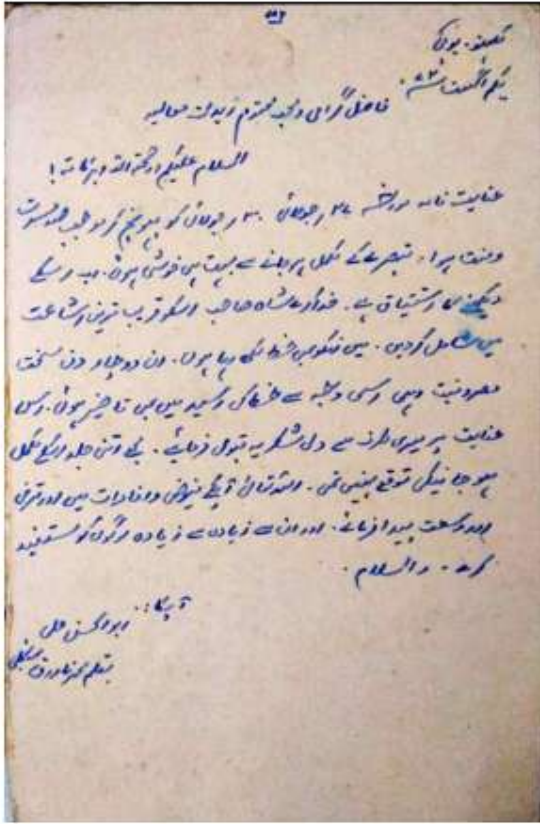 لکھنؤ۔ یوپی
یکم اگست ۷۳ء
فاضل گرامی و محب محترم زیدت معالیہ
السلام علیکم ورحمۃ اللہ وبرکاتہ!
عنایت نامہ مورخہ ۲۷ر جولائی ۳۰ر جولائی کو پہونچ کر موجب مسرت
ومنت ہوا۔ تبصرے کے مکمل ہوجانے سے بہت ہی خوشی ہوئی۔ اب اسکے
دیکھنے کا اشتیاق ہے۔ خدا کرے شاہ صاحب اسکو قریب ترین اشاعت
میں شامل کردیں۔ میں انکو بھی خط لکھ رہا ہوں۔ ان دوچار دن سخت
مصروفیت رہی اسی وجہ سے خط کی رسید میں بھی تاخیر ہوئی۔ اس
عنایت پر میری طرف سے دلی شکریہ قبول فرمائیے۔ مجھے اتنی جلد اسکے مکمل
ہو جانیکی توقع نہیں تھی۔ اللہ تعالیٰ آپکے فیوض وافادات میں اور ترقی
اور وسعت پیدا فرمائے۔ اور ان سے زیادہ سے زیادہ لوگوں کو مستفید
کرے۔ والسلام۔
آپکا:۔ ابوالحسن علی
بقلم